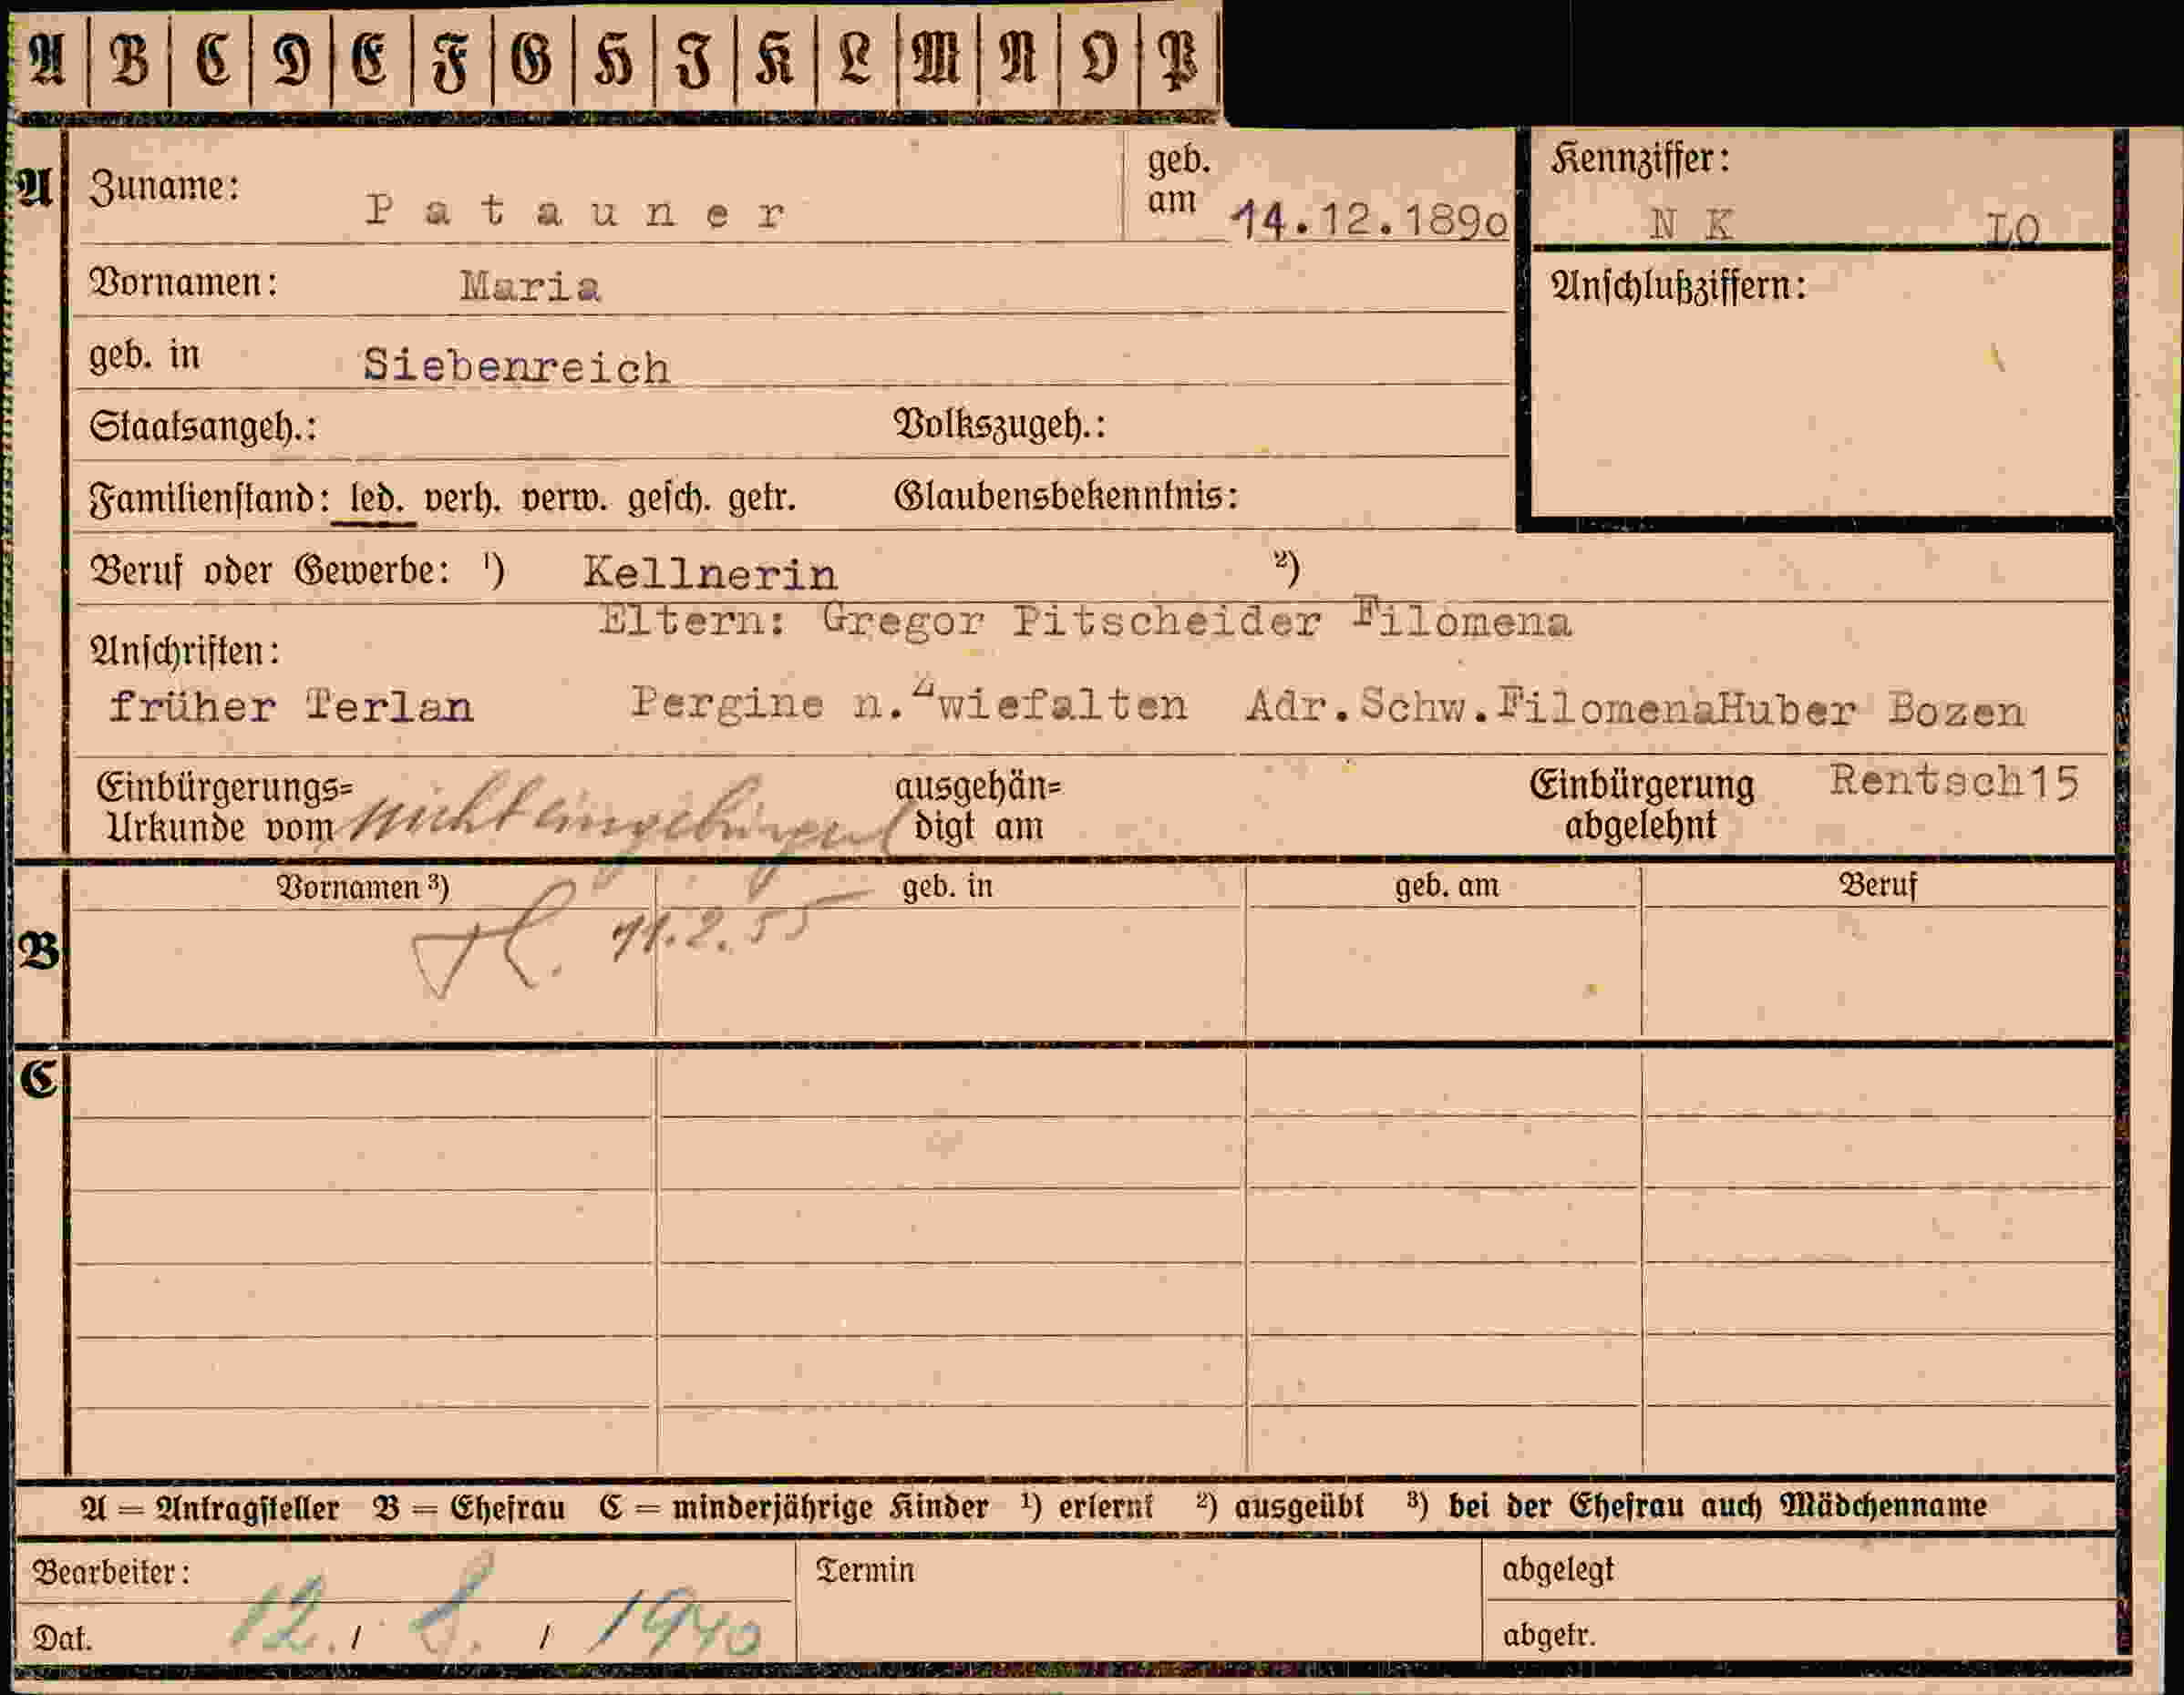 A B C D E F G H I K L M N O P
A Zuname: Patauner geb. am 14.12.1890 Kennziffer: N K LO
Vornamen: Maria Anschlußziffern:
geb. in Siebenreich
Staatsangeh.: Volkszugeh.:
Familienstand: led. verh. verw. gesch. getr. Glaubensbekenntnis:
Beruf oder Gewerbe: ¹) Kellnerin ²)
Eltern: Gregor Pitscheider Filomena
Anschriften:
früher Terlan Pergine n.Zwiefalten Adr.Schw.FilomenaHuber Bozen
Rentsch15
Einbürgerungs= Urkunde vom nicht eingebürgert ausgehän= digt am Einbürgerung abgelehnt
B Vornamen ³) geb. in geb. am Beruf
11.2.55
C
A = Antragsteller B = Ehefrau C = minderjährige Kinder ¹) erlernt ²) ausgeübt ³) bei der Ehefrau auch Mädchenname
Bearbeiter: Termin abgelegt
Dat. 12. / 8. / 1940 abgetr.